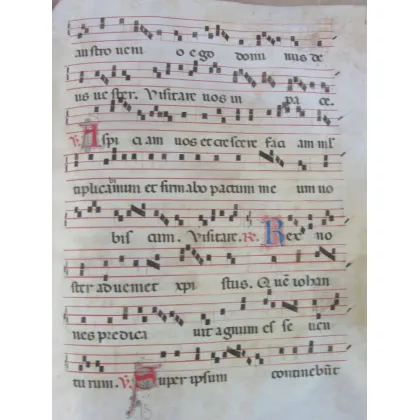 au stro veni o e go domi nus de
us ve ster. Visitare vos in pa ce.
℣. Aspi ci am vos et crescere faci am ml̄
tiplicabimini et firmabo pactum me um vo
bis cum. Visitare. ℟. Rex no
ster adveniet xpi stus. Quē iohan
nes predica vit agnum es se ven
tu rum. ℣. Super ipsum continebūt